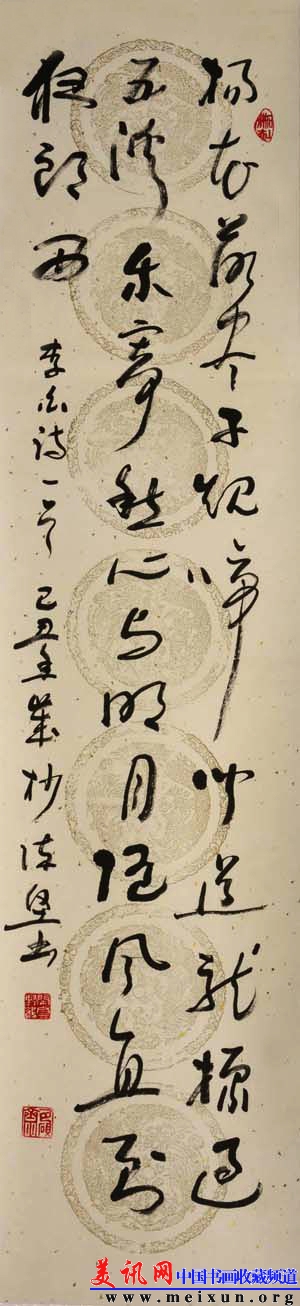 杨花落尽子规啼闻道龙标过
五溪我寄愁心与明月随风直到
夜郎西
李白诗一首 己丑年岁杪 书
美讯网 中国书画收藏频道
www.meixun.org